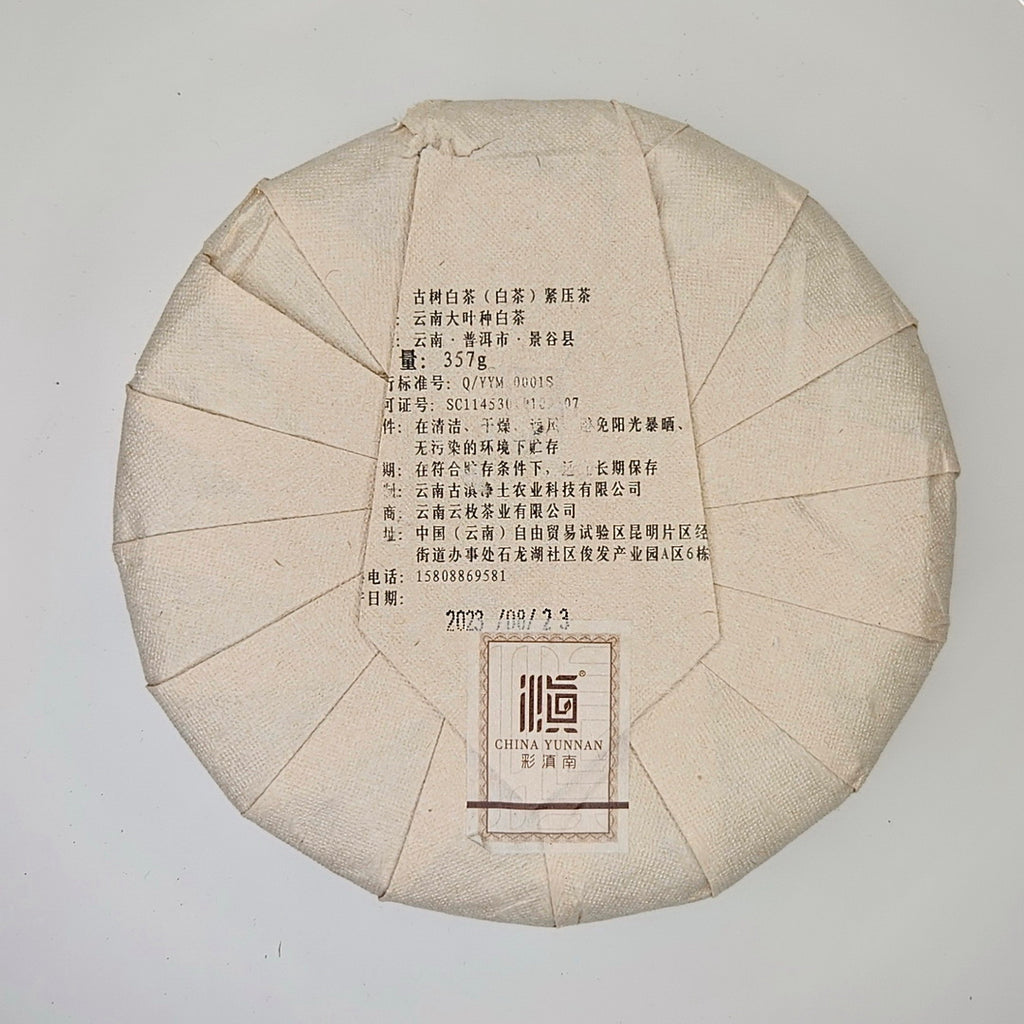 古树白茶（白茶）紧压茶
：云南大叶种白茶
：云南·普洱市·景谷县
量：357g
行标准号：Q/YYM 0001S
可证号：SC11453
件：在清洁、干燥、 免阳光暴晒、
无污染的环境下贮存
期：在符合贮存条件下， 长期保存
制：云南古滇净土农业科技有限公司
商：云南云枚茶业有限公司
址：中国（云南）自由贸易试验区昆明片区经
街道办事处石龙湖社区俊发产业园A区6栋
电话：15808869581
日期：
2023 /08/ 23
滇®
CHINA YUNNAN
彩滇南